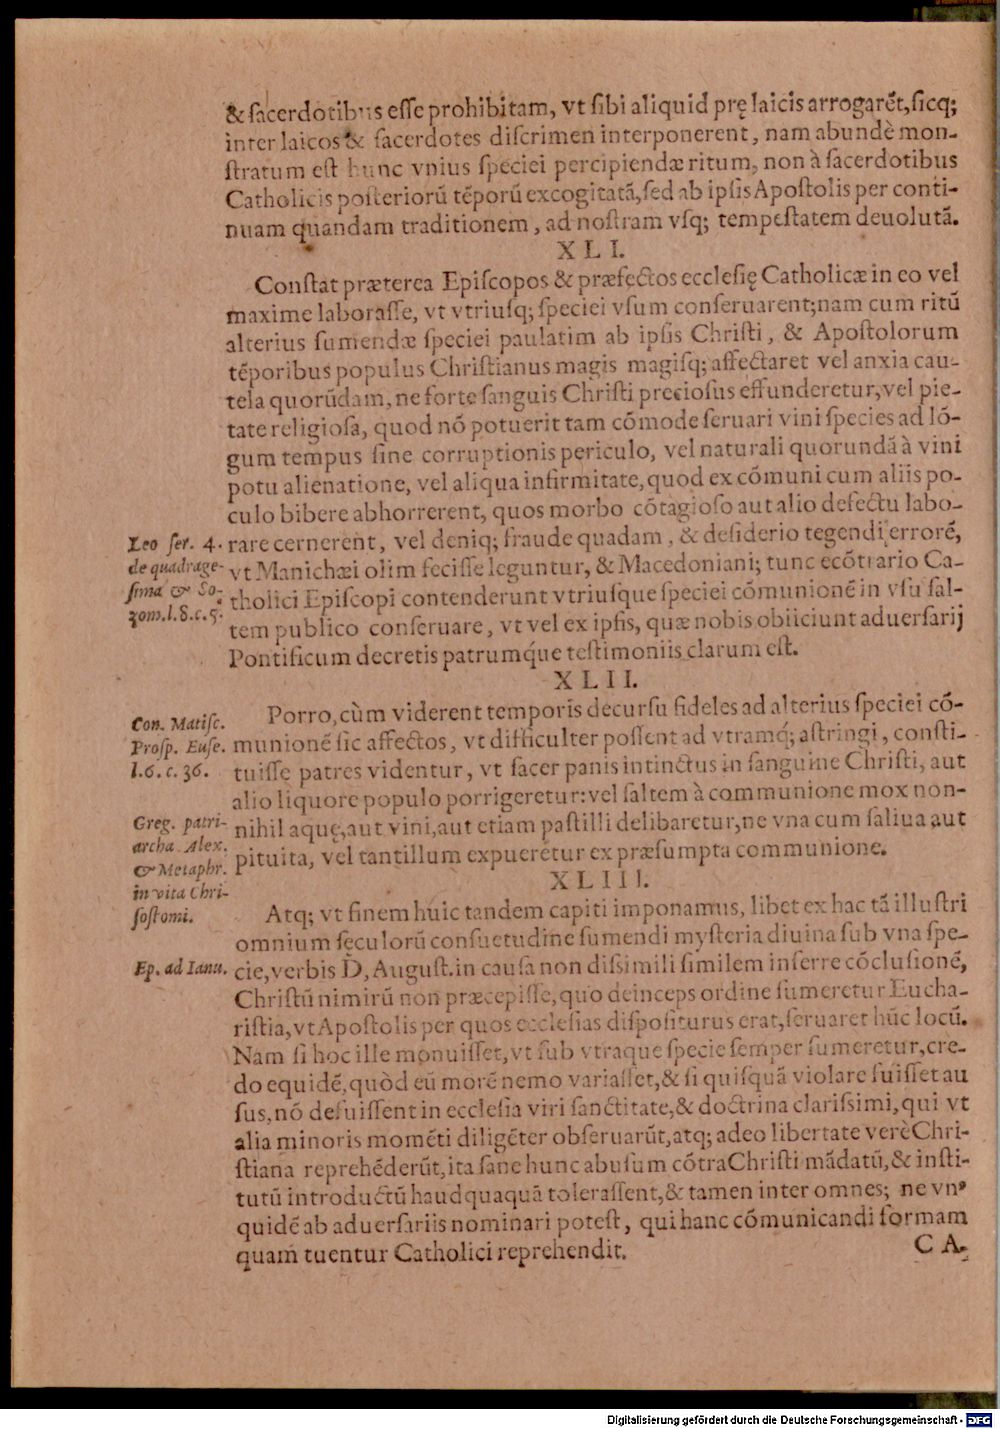 & ſacerdotibus eſſe prohibitam, vt ſibi aliquid prę laicis arrogarẽt, ſicq;
inter laicos & ſacerdotes diſcrimen interponerent, nam abundè mon-
ſtratum eſt hunc vnius ſpeciei percipiendæ ritum, non à ſacerdotibus
Catholicis poſteriorũ tẽporũ excogitatã, ſed ab ipſis Apoſtolis per conti-
nuam quandam traditionem, ad noſtram vſq; tempeſtatem deuolutã.
XLI.
Conſtat præterea Epiſcopos & præfectos eccleſię Catholicæ in eo vel
maxime laboraſſe, vt vtriuſq; ſpeciei vſum conſeruarent; nam cum ritũ
alterius ſumendæ ſpeciei paulatim ab ipſis Chriſti, & Apoſtolorum
tẽporibus populus Chriſtianus magis magiſq; affectaret vel anxia cau-
tela quorũdam, ne forte ſanguis Chriſti precioſus effunderetur, vel pie-
tate religioſa, quod nõ potuerit tam cõmode ſeruari vini ſpecies ad lõ-
gum tempus ſine corruptionis periculo, vel naturali quorundã à vini
potu alienatione, vel aliqua infirmitate, quod ex cõmuni cum aliis po-
culo bibere abhorrerent, quos morbo cõtagioſo aut alio defectu labo-
rare cernerent, vel deniq; fraude quadam, & deſiderio tegendi errorẽ,
vt Manichæi olim feciſſe leguntur, & Macedoniani; tunc ecõtrario Ca-
tholici Epiſcopi contenderunt vtriuſque ſpeciei cõmunionẽ in vſu ſal-
tem publico conſeruare, vt vel ex ipſis, quæ nobis obiiciunt aduerſarij
Pontificum decretis patrumq́ue teſtimoniis clarum eſt.
Leo ſer. 4.
de quadrage-
ſima & So-
zom. l. 8. c. 5.
XLII.
Porro, cùm viderent temporis decurſu fideles ad alterius ſpeciei cõ-
munionẽ ſic affectos, vt difficulter poſſent ad vtramq́; aſtringi, conſti-
tuiſſe patres videntur, vt ſacer panis intinctus in ſanguine Chriſti, aut
alio liquore populo porrigeretur: vel ſaltem à communione mox non-
nihil aquę, aut vini, aut etiam paſtilli delibaretur, ne vna cum ſaliua aut
pituita, vel tantillum expuerẽtur ex præſumpta communione.
Con. Matiſc.
Proſp. Euſe.
l. 6. c. 36.
Greg. patri-
archa Alex.
& Metaphr.
in vita Chri-
ſoſtomi.
XLIII.
Atq; vt finem huic tandem capiti imponamus, libet ex hac tã illuſtri
omnium ſęculorũ conſuetudine ſumendi myſteria diuina ſub vna ſpe-
cie, verbis D, Auguſt. in cauſa non diſsimili ſimilem inferre cõcluſionẽ,
Chriſtũ nimirũ non præcepiſſe, quo deinceps ordine ſumeretur Eucha-
riſtia, vt Apoſtolis per quos eccleſias diſpoſiturus erat, ſeruaret hũc locũ.
Nam ſi hoc ille monuiſſet, vt ſub vtraque ſpecie ſemper ſumeretur, cre-
do equidẽ, quòd eũ morẽ nemo variaſſet, & ſi quiſquã violare fuiſſet au
ſus, nõ defuiſſent in eccleſia viri ſanctitate, & doctrina clariſsimi, qui vt
alia minoris momẽti diligẽter obſeruarũt, atq; adeo libertate verè Chri-
ſtiana reprehẽderũt, ita ſane hunc abuſum cõtra Chriſti mãdatũ, & inſti-
tutũ introductũ haudquaquã toleraſſent, & tamen inter omnes; ne vnꝰ
quidẽ ab aduerſariis nominari poteſt, qui hanc cõmunicandi formam
quam tuentur Catholici reprehendit.
Ep. ad Ianu.
CA.
Digitalisierung gefördert durch die Deutsche Forschungsgemeinschaft - DFG